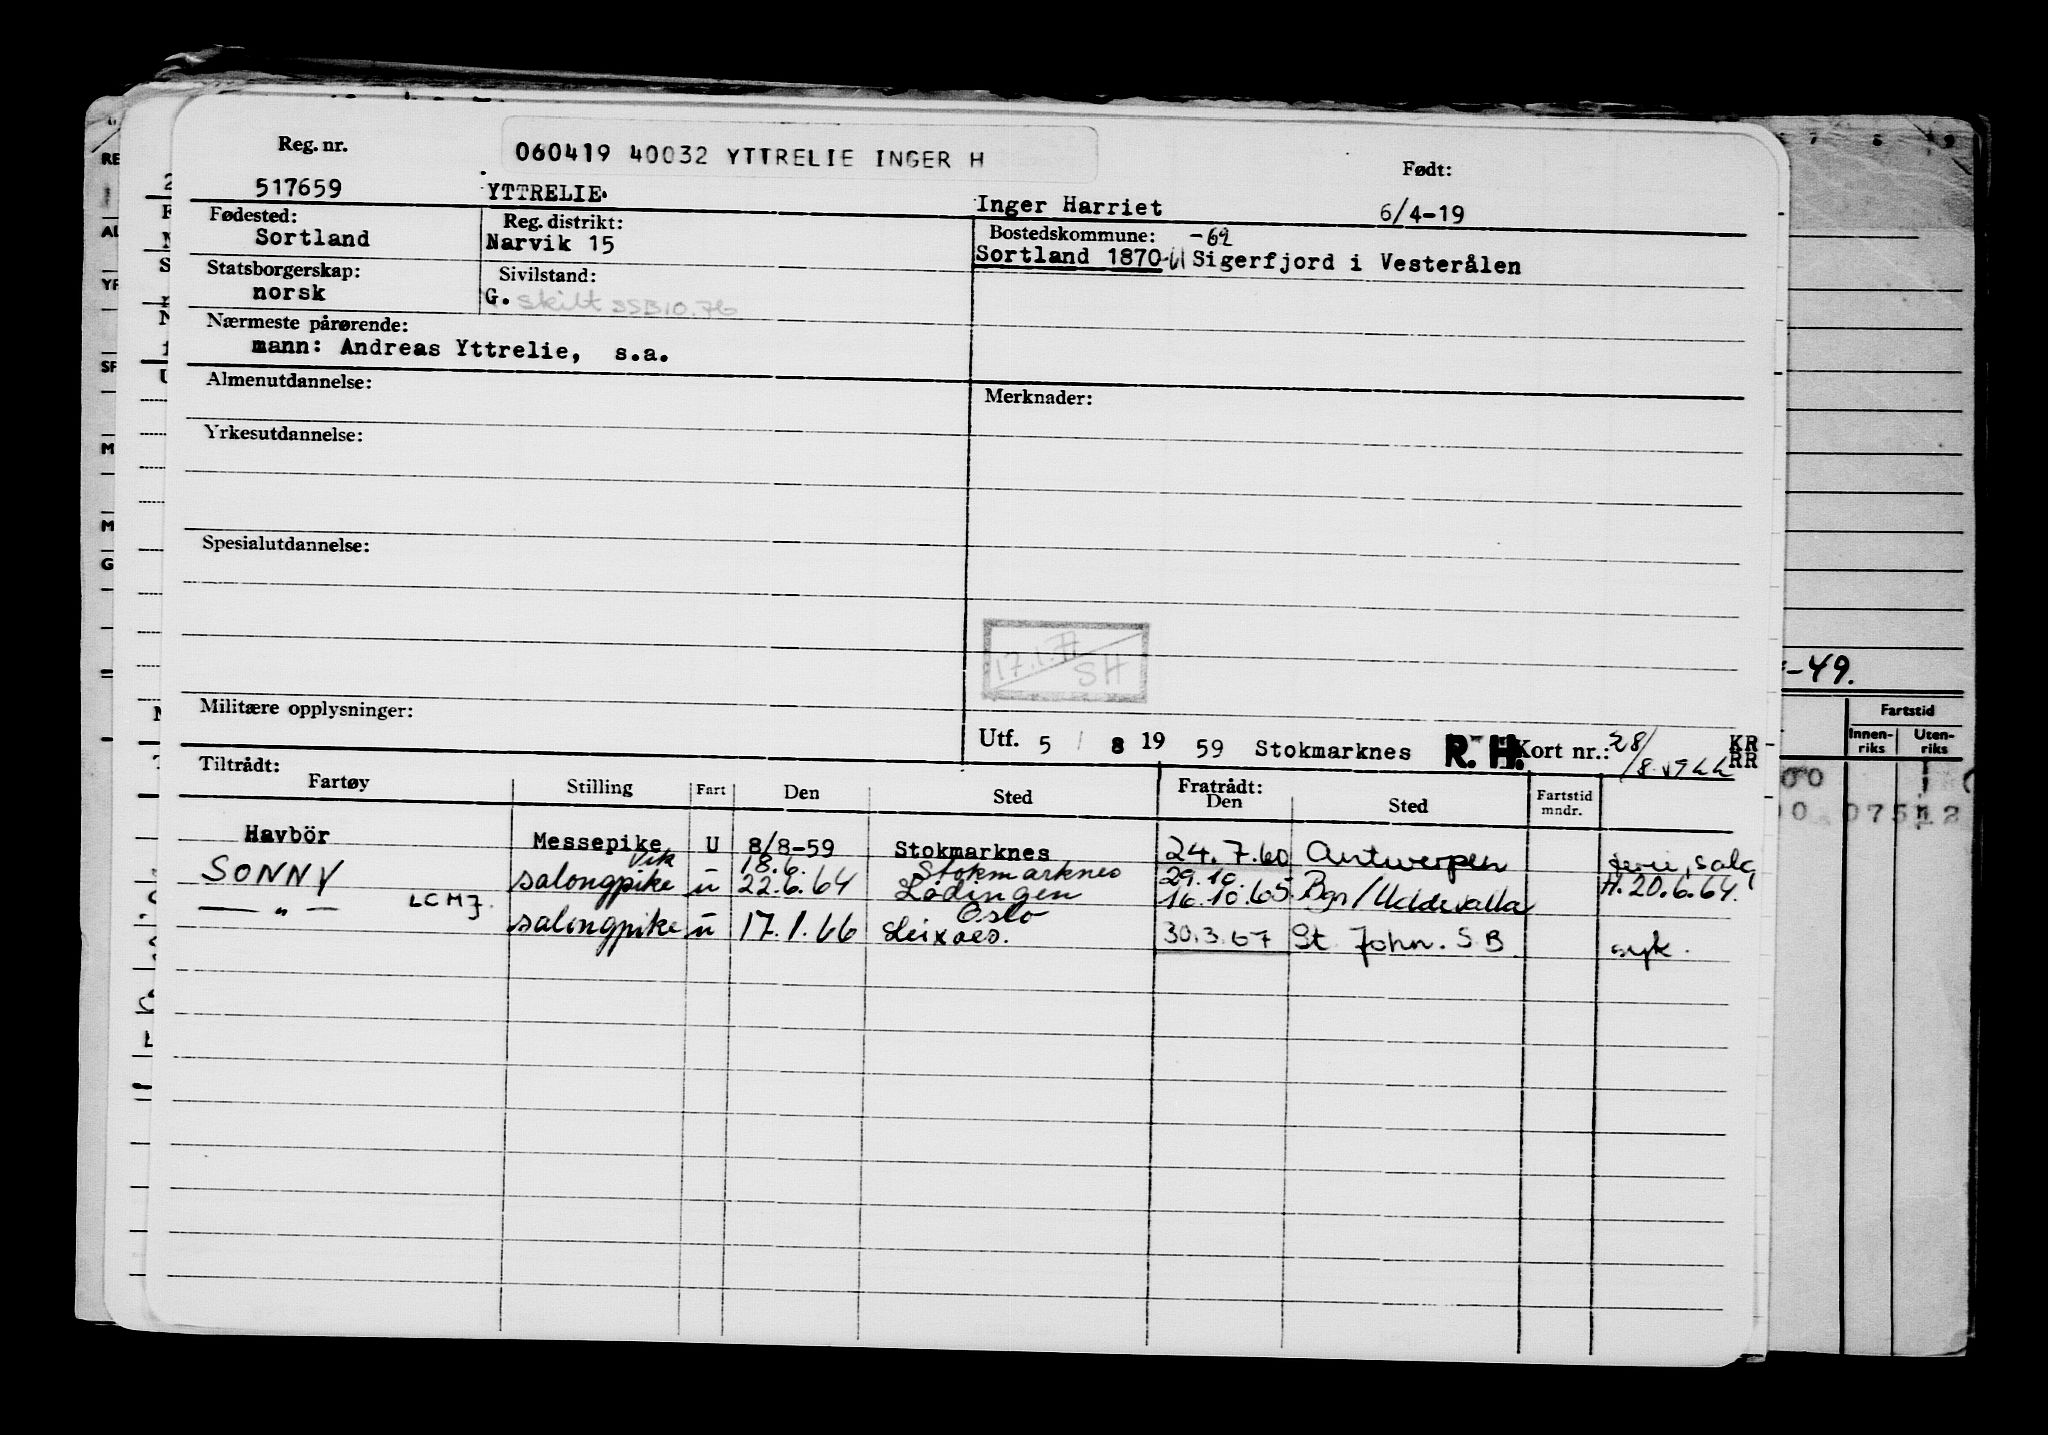 060419 40032 YTTRELIE INGER H
Reg. nr. Født:
517659 YTTRELIE Inger Harriet 6/4-19
Fødested: Reg. distrikt: Bostedskommune: -69
Sortland Narvik 15 Sortland 1870 Sigerfjord i Vesterålen
Statsborgerskap: Sivilstand:
norsk G. skilt SSB 10.76
Nærmeste pårørende:
mann: Andreas Yttrelie, s.a.
Almenutdannelse: Merknader:
Yrkesutdannelse:
Spesialutdannelse:
17.1.77
SH
Militære opplysninger:
Utf. 5 / 8 19 59 Stokmarknes R. H. Kort nr.: 28/ KR
RR
Tiltrådt: Fratrådt:
Fartøy Stilling Fart Den Sted Den Sted Fartstid mndr.
Havbör Messepike U 8/8-59 Stokmarknes 24.7.60 Antwerpen
Vik 18.6. Stokmarknes 29.10.
SONNY salongpike u 22.6.64 Lödingen 16.10.65 Bgn/Uddevalla H. 20.6.64.
— " — LCMJ. Oslo
salongpike u 17.1.66 Leixoes. 30.3.67 St. John. S B syk.
-49.
Fartstid
Innen-riks Uten-riks